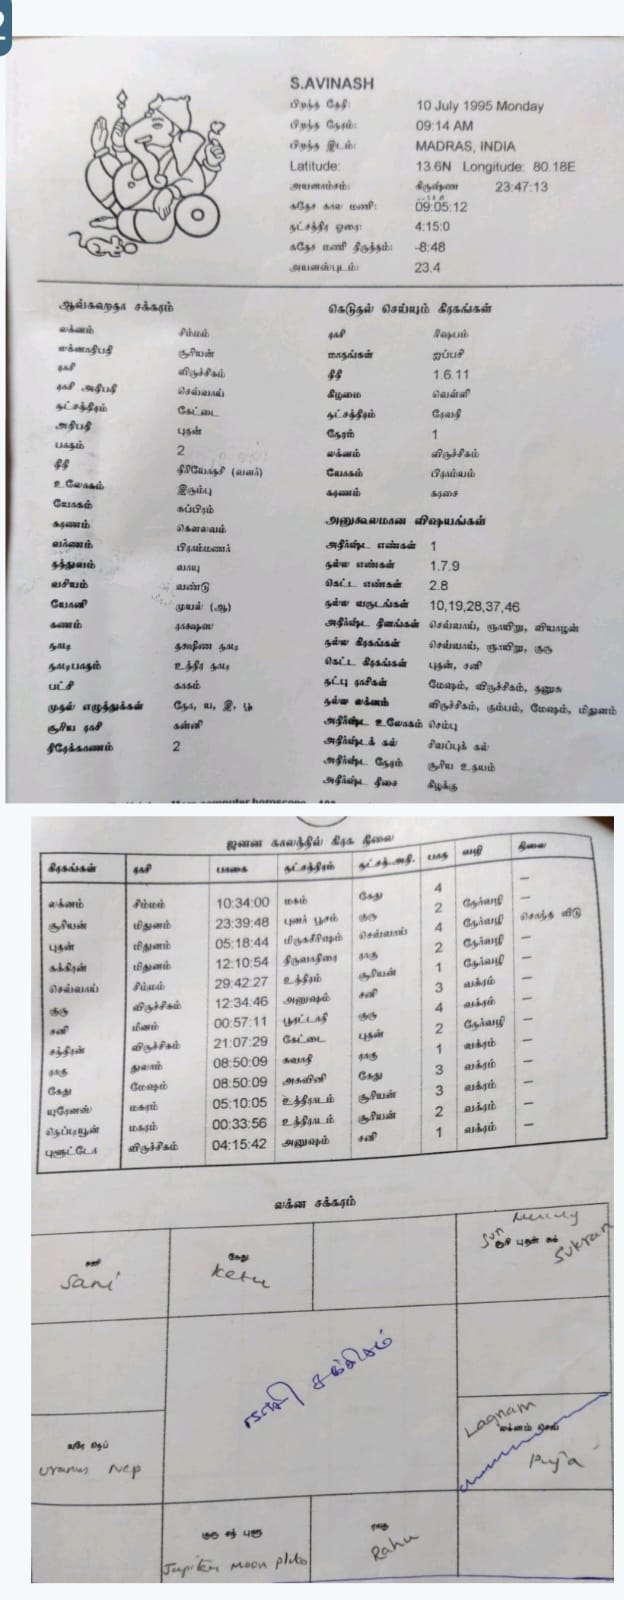 2
S.AVINASH
பிறந்த தேதி: 10 July 1995 Monday
பிறந்த நேரம்: 09:14 AM
பிறந்த இடம்: MADRAS, INDIA
Latitude: 13.6N Longitude: 80.18E
அயனாம்சம்: கிருஷ்ண 23:47:13
சுதேச கால மணி: 09:05:12
நட்சத்திர ஓரை: 4:15:0
சுதேச மணி திருத்தம்: -8:48
அயனஸ்புடம்: 23.4
அவ்கஹதா சக்கரம்
லக்னம் சிம்மம்
லக்னாதிபதி சூரியன்
ராசி விருச்சிகம்
ராசி அதிபதி செவ்வாய்
நட்சத்திரம் கேட்டை
அதிபதி புதன்
பாதம் 2
திதி திரியோதசி (வளர்)
உலோகம் இரும்பு
யோகம் சுப்பிரம்
கரணம் கௌலவம்
வர்ணம் பிராம்மணர்
தத்துவம் வாயு
வசியம் வண்டு
யோனி முயல் (ஆ)
கணம் ராக்ஷஸ
நாடி தக்ஷிண நாடி
நாடிபாதம் உத்திர நாடி
பட்சி காகம்
முதல் எழுத்துக்கள் நோ, ய, இ, பூ
சூரிய ராசி கன்னி
திரேக்காணம் 2
கெடுதல் செய்யும் கிரகங்கள்
ராசி ரிஷபம்
மாதங்கள் ஐப்பசி
திதி 1.6.11
கிழமை வெள்ளி
நட்சத்திரம் ரேவதி
நேரம் 1
லக்னம் விருச்சிகம்
யோகம் பிராம்யம்
கரணம் கரசை
அனுகூலமான விஷயங்கள்
அதிர்ஷ்ட எண்கள் 1
நல்ல எண்கள் 1.7.9
கெட்ட எண்கள் 2.8
நல்ல வருடங்கள் 10,19,28,37,46
அதிர்ஷ்ட தினங்கள் செவ்வாய், ஞாயிறு, வியாழன்
நல்ல கிரகங்கள் செவ்வாய், ஞாயிறு, குரு
கெட்ட கிரகங்கள் புதன், சனி
நட்பு ராசிகள் மேஷம், விருச்சிகம், தனுசு
நல்ல லக்னம் விருச்சிகம், கும்பம், மேஷம், மிதுனம்
அதிர்ஷ்ட உலோகம் செம்பு
அதிர்ஷ்டக் கல் சிவப்புக் கல்
அதிர்ஷ்ட நேரம் சூரிய உதயம்
அதிர்ஷ்ட திசை கிழக்கு
ஜனன காலத்தில் கிரக நிலை
கிரகங்கள் ராசி பாகை நட்சத்திரம் நட்சத்.அதி. பாத வழி நிலை
லக்னம் சிம்மம் 10:34:00 மகம் கேது 4 –
சூரியன் மிதுனம் 23:39:48 புனர் பூசம் குரு 2 நேர்வழி –
புதன் மிதுனம் 05:18:44 மிருகசீரிஷம் செவ்வாய் 4 நேர்வழி சொந்த வீடு
சுக்கிரன் மிதுனம் 12:10:54 திருவாதிரை ராகு 2 நேர்வழி –
செவ்வாய் சிம்மம் 29:42:27 உத்திரம் சூரியன் 1 நேர்வழி –
குரு விருச்சிகம் 12:34:46 அனுஷம் சனி 3 வக்ரம் –
சனி மீனம் 00:57:11 பூரட்டாதி குரு 4 வக்ரம் –
சந்திரன் விருச்சிகம் 21:07:29 கேட்டை புதன் 2 நேர்வழி –
ராகு துலாம் 08:50:09 சுவாதி ராகு 1 வக்ரம் –
கேது மேஷம் 08:50:09 அசுவினி கேது 3 வக்ரம் –
யுரேனஸ் மகரம் 05:10:05 உத்திராடம் சூரியன் 3 வக்ரம் –
நெப்டியூன் மகரம் 00:33:56 உத்திராடம் சூரியன் 2 வக்ரம் –
புளூட்டோ விருச்சிகம் 04:15:42 அனுஷம் சனி 1 வக்ரம் –
லக்ன சக்கரம்
சனி
Sani
கேது
Ketu
Sun
சூரி புதன் சுக்
Sukran
யுரே நெப்
Uranus Nep
Lagnam
லக்னம் செவ்
குரு சந் புளூ
Jupiter moon pluto
ராகு
Rahu